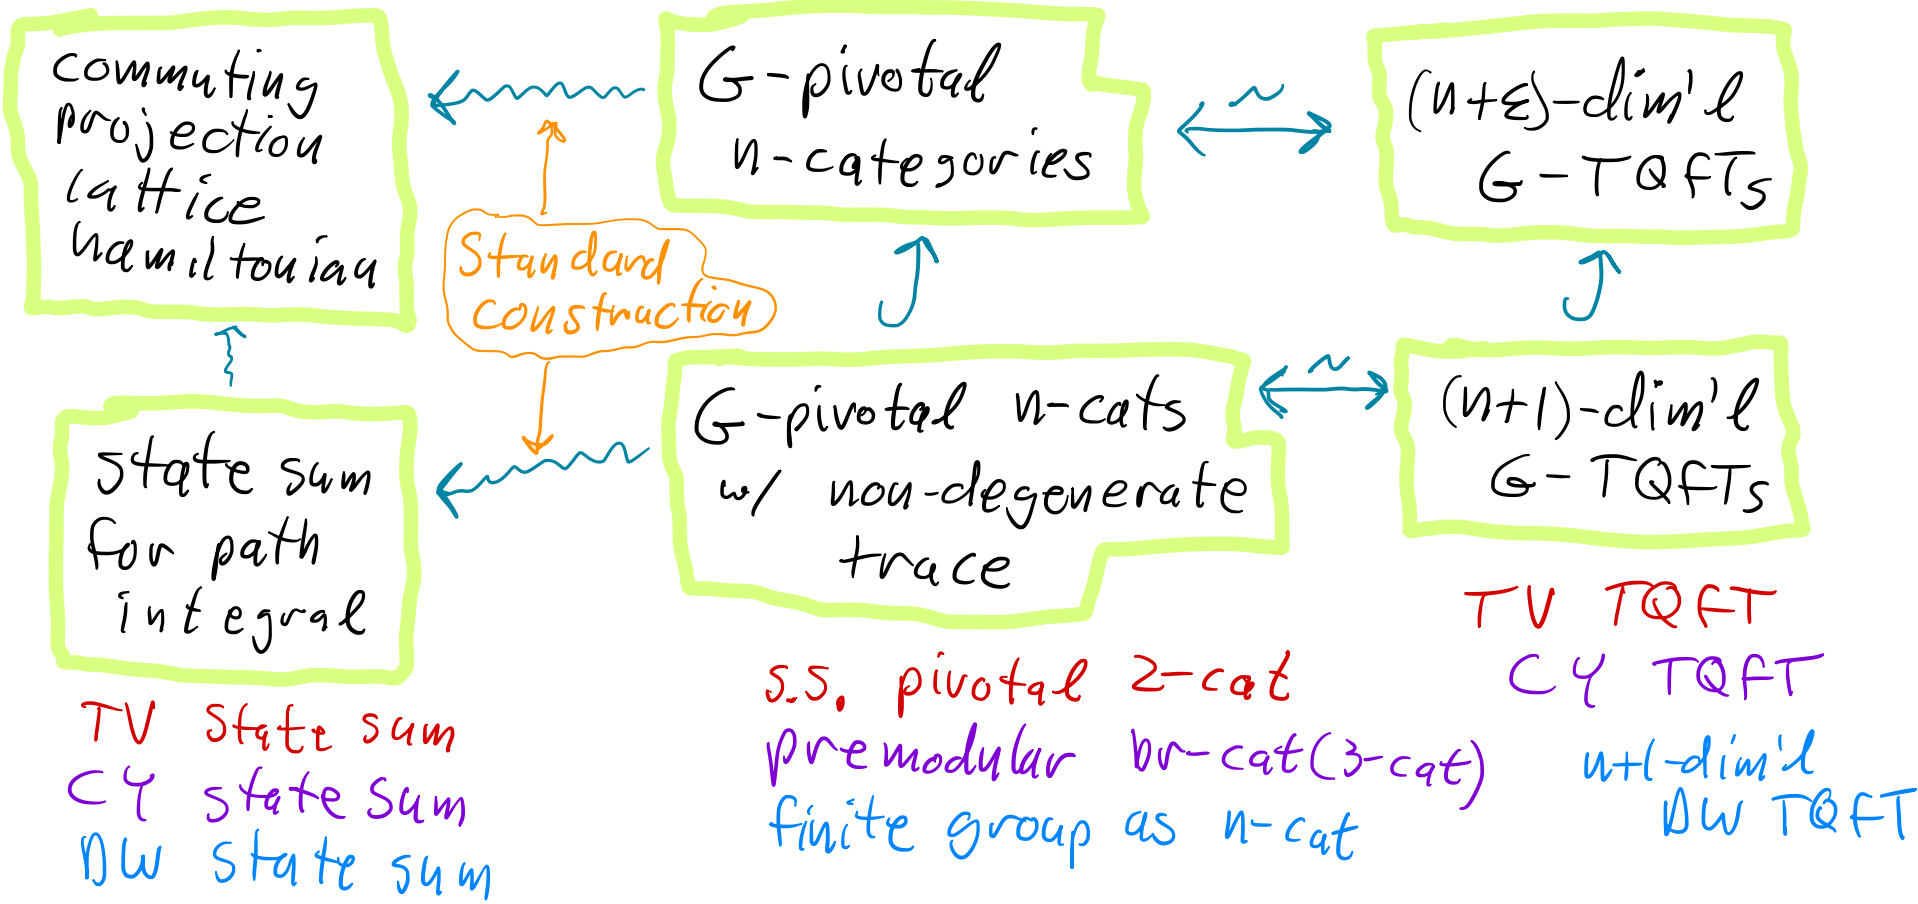 commuting
projection
lattice
hamiltonian
G-pivotal
n-categories
~
(n+ε)-dim'l
G-TQFTs
Standard
construction
state sum
for path
integral
G-pivotal n-cats
w/ non-degenerate
trace
~
(n+1)-dim'l
G-TQFTs
TV state sum
CY state sum
DW state sum
s.s. pivotal 2-cat
premodular br-cat (3-cat)
finite group as n-cat
TV TQFT
CY TQFT
n+1-dim'l
DW TQFT